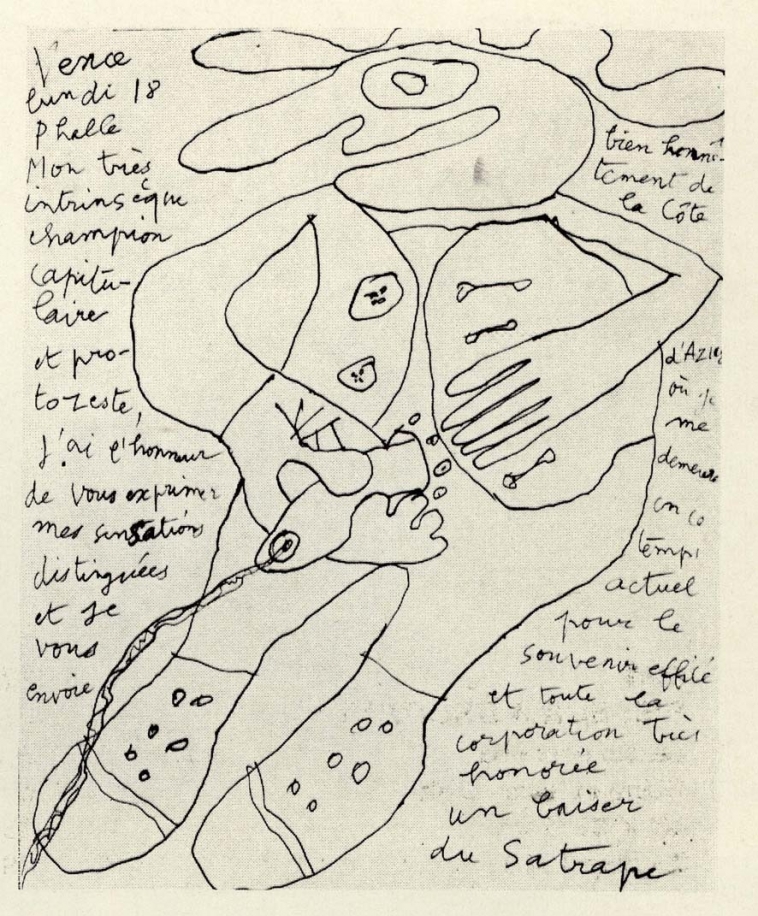 Vence
lundi 18
Phalle
Mon très
intrinsèque
champion
capitu-
laire
et pro-
tozeste,
J'ai l'honneur
de vous exprimer
mes sensations
distinguées
et je
vous
envoie
bien honnê-
tement de
la Côte
d'Azur
où je
me
demeure
en ce
temps
actuel
pour le
souvenir effilé
et toute la
corporation très
honorée
un baiser
du Satrape